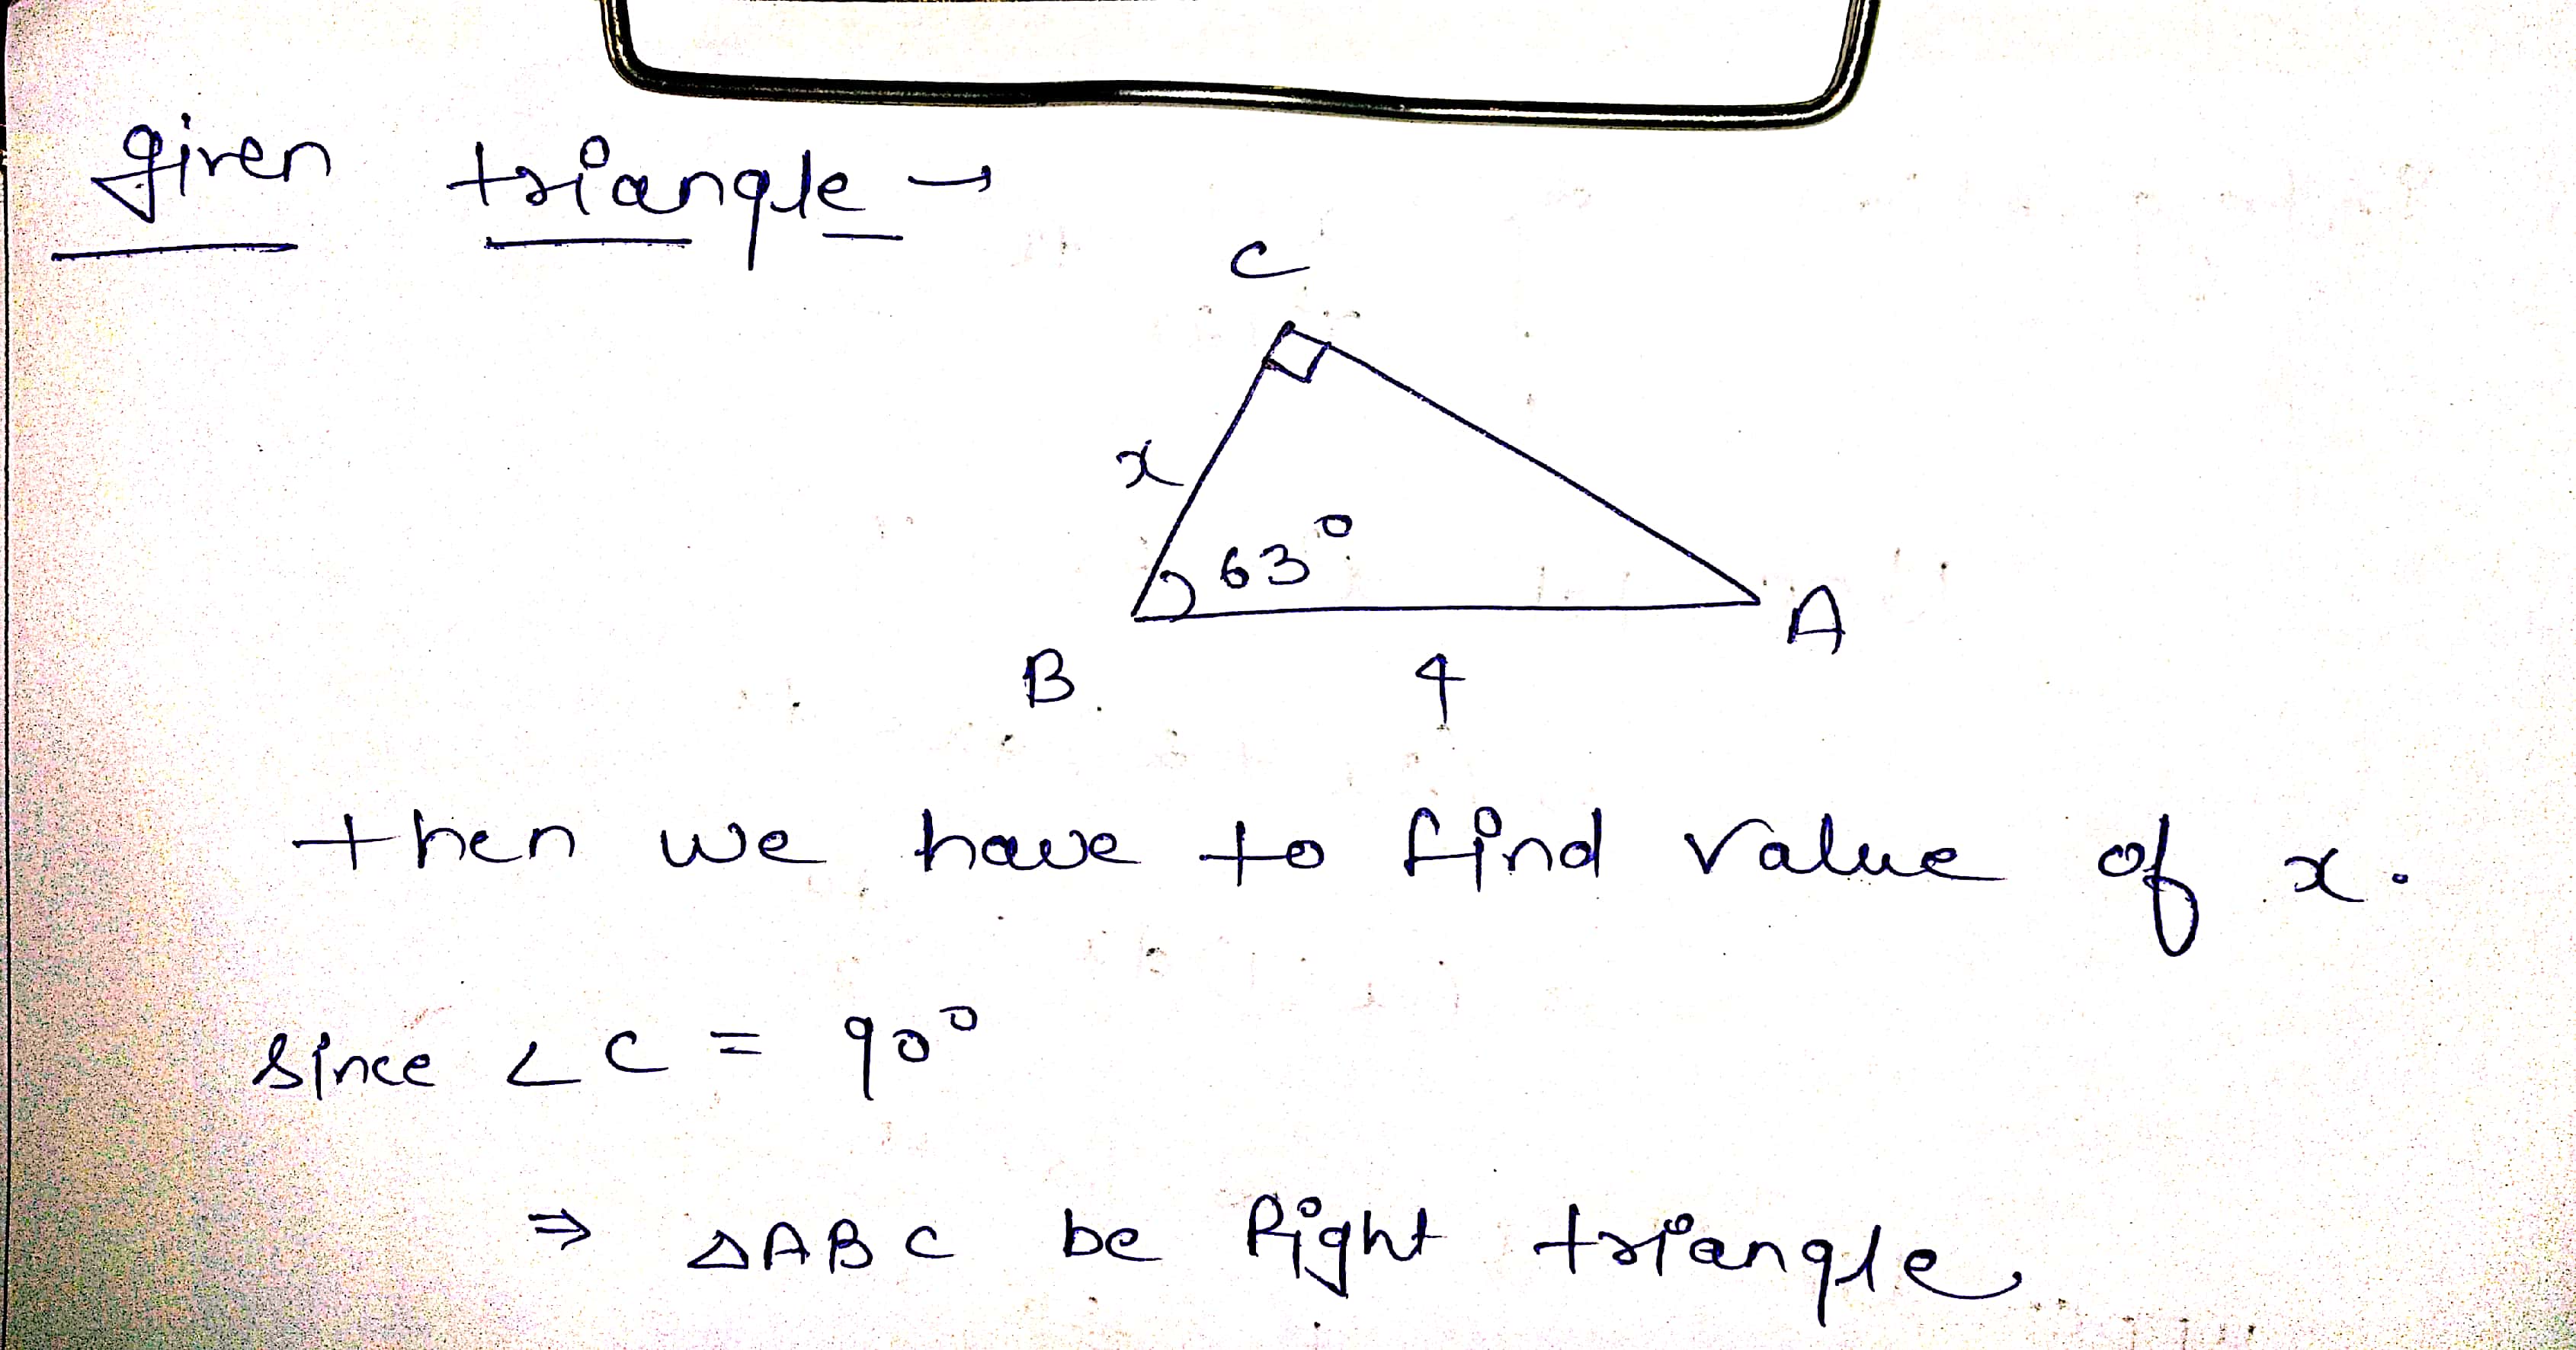 given triangle →
C
x
63°
A
B
4
then we have to find value of x.
since ∠C = 90°
⇒ △ABC be Right triangle